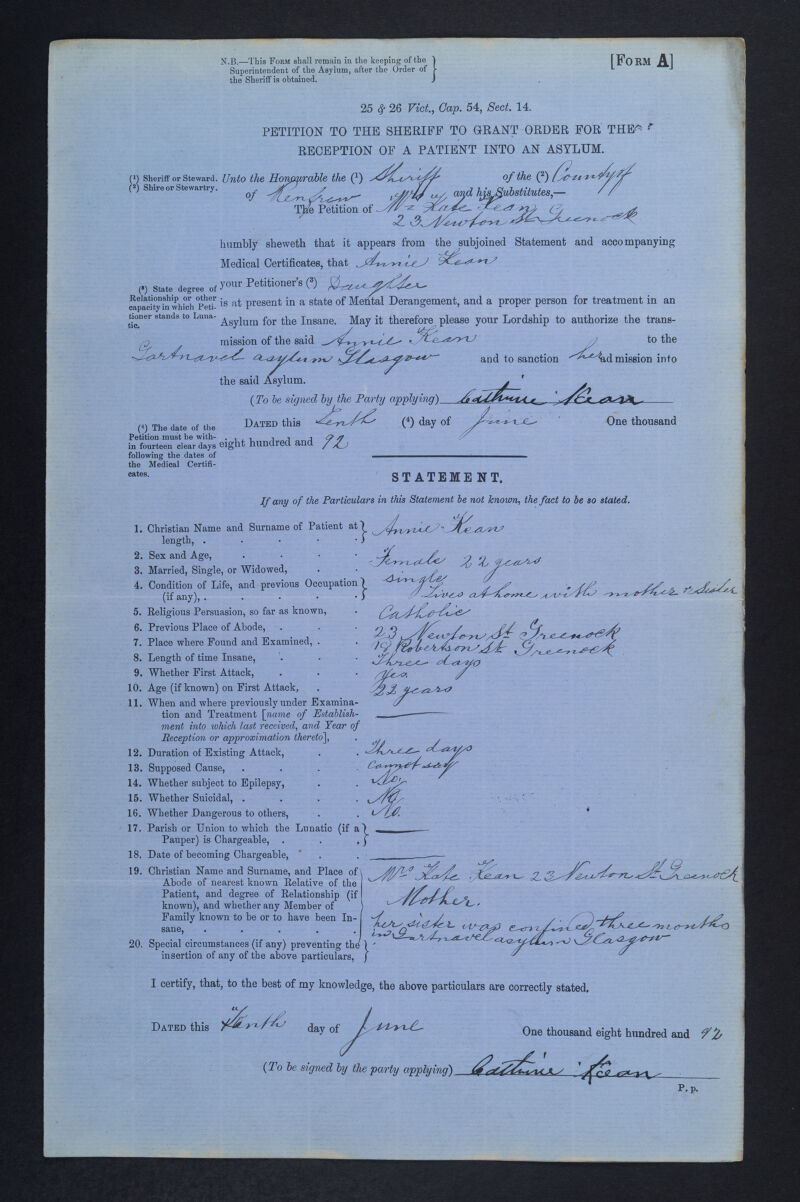 N.B.—This Form shall remain in the keeping of the
Superintendent of the Asylum, after the Order of
the Sheriff is obtained.
[Form A]
25 & 26 Vict., Cap. 54, Sect. 14.
PETITION TO THE SHERIFF TO GRANT ORDER FOR THE
RECEPTION OF A PATIENT INTO AN ASYLUM.
(1) Sheriff or Steward.
(2) Shire or Stewartry.
Unto the Honourable the (1) Sheriff of the (2) County of
of Renfrew and his Substitutes,—
The Petition of Mrs Kate Kean
23 Newton St Greenock
humbly sheweth that it appears from the subjoined Statement and accompanying
Medical Certificates, that Annie Kean
(3) State degree of
Relationship or other
capacity in which Peti-
tioner stands to Luna-
tic.
your Petitioner's (3) Daughter
is at present in a state of Mental Derangement, and a proper person for treatment in an
Asylum for the Insane. May it therefore please your Lordship to authorize the trans-
mission of the said Annie Kean to the
Gartnavel asylum Glasgow and to sanction her admission into
the said Asylum.
(To be signed by the Party applying) Cathrine Kean
(4) The date of the
Petition must be with-
in fourteen clear days
following the dates of
the Medical Certifi-
cates.
Dated this Tenth (4) day of June One thousand
eight hundred and 92
STATEMENT.
If any of the Particulars in this Statement be not known, the fact to be so stated.
1. Christian Name and Surname of Patient at
length, . Annie Kean
2. Sex and Age, Female 22 years
3. Married, Single, or Widowed, single
4. Condition of Life, and previous Occupation
(if any), . Lives at home with mother & Sister
5. Religious Persuasion, so far as known, Catholic
6. Previous Place of Abode, 23 Newton St Greenock
7. Place where Found and Examined, . 18 Robertson St Greenock
8. Length of time Insane, Three days
9. Whether First Attack, Yes
10. Age (if known) on First Attack, 22 years
11. When and where previously under Examina-
tion and Treatment [name of Establish-
ment into which last received, and Year of
Reception or approximation thereto],
12. Duration of Existing Attack, Three days
13. Supposed Cause, Cannot say
14. Whether subject to Epilepsy, No.
15. Whether Suicidal, . No
16. Whether Dangerous to others, No.
17. Parish or Union to which the Lunatic (if a
Pauper) is Chargeable, .
18. Date of becoming Chargeable,
19. Christian Name and Surname, and Place of
Abode of nearest known Relative of the
Patient, and degree of Relationship (if
known), and whether any Member of
Family known to be or to have been In-
sane,
Mrs Kate Kean 23 Newton St Greenock
Mother.
her sister was confined three months
in Gartnavel asylum Glasgow
20. Special circumstances (if any) preventing the
insertion of any of the above particulars,
I certify, that, to the best of my knowledge, the above particulars are correctly stated.
Dated this Tenth day of June One thousand eight hundred and 92
(To be signed by the party applying) Cathrine Kean
P. p.